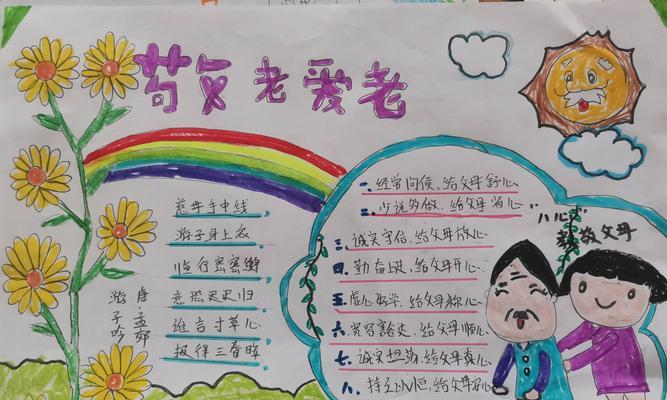 敬老爱老
慈母手中线
游子身上衣
临行密密缝
意恐迟迟归
谁言寸草心
报得三春晖
唐·孟郊
游子吟
"八心"
父母
一、经常问候,给父母舒心
二、少说多做、给父母省心
三、诚实守信,给父母放心
四、勤奋上进,给父母开心
五、虚心好学,给父母称心
六、宽容豁达,给父母顺心
七、诚实坦荡,给父母真心
八、持之以恒,给父母心